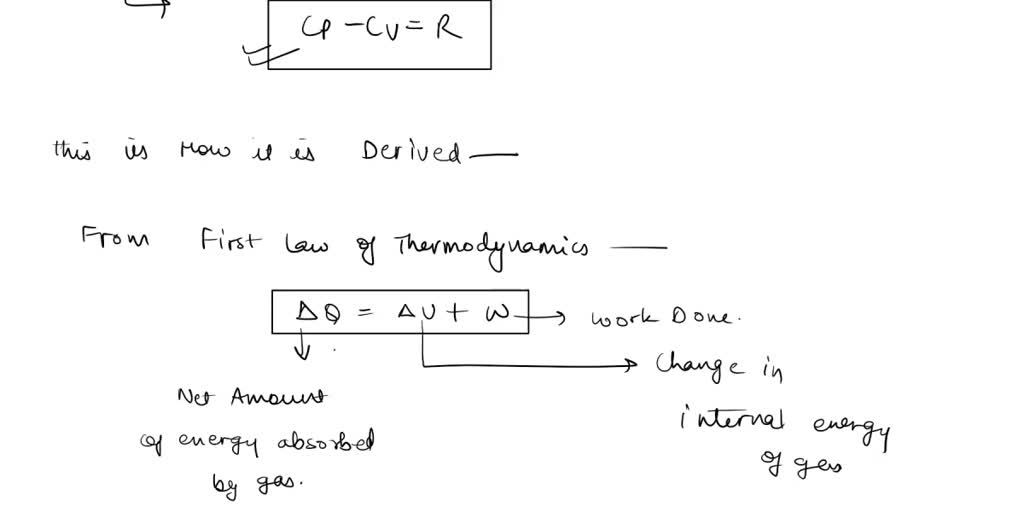 Cp - Cv = R
this is How it is Derived —
From First Law of Thermodynamics —
ΔQ = ΔU + W → Work Done.
Change in
internal energy
of gas
Net Amount
of energy absorbed
by gas.